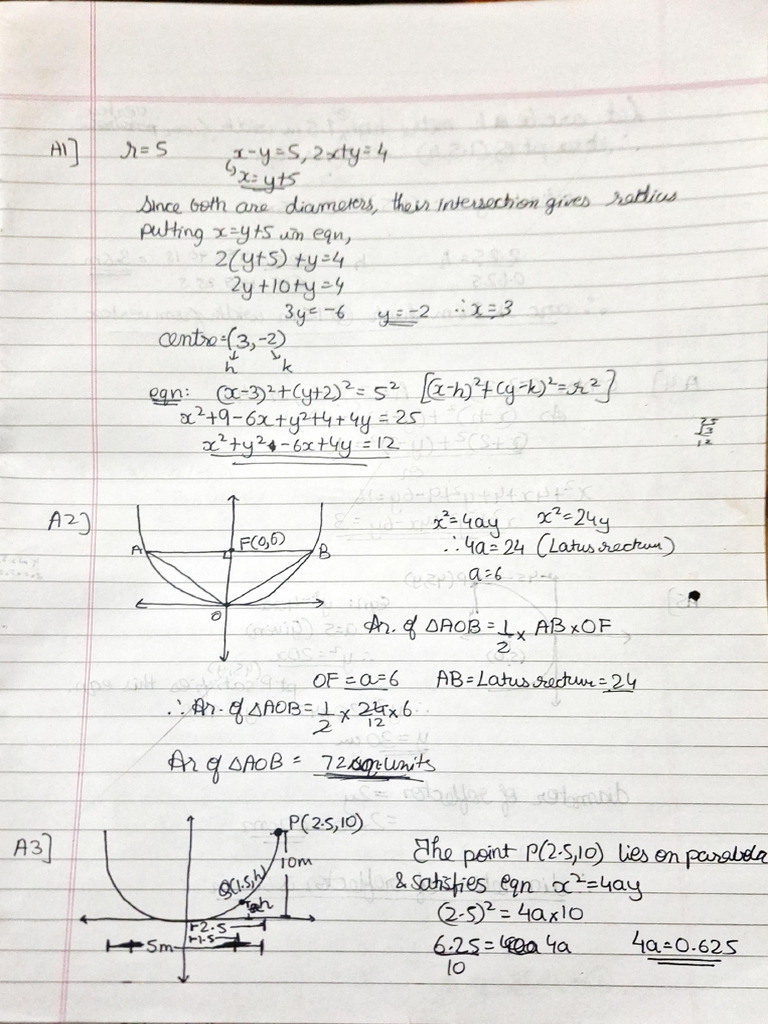 A1] r=5 x-y=5, 2x+y=4
↳ x=y+5
Since both are diameters, their intersection gives radius
putting x=y+5 in eqn,
2(y+5)+y=4
2y+10+y=4
3y=-6 y=-2 ∴x=3
centre=(3,-2)
h k
eqn: (x-3)²+(y+2)²=5² [(x-h)²+(y-k)²=r²]
x²+9-6x+y²+4+4y=25
x²+y²-6x+4y=12
25
13
12
A2] x²=4ay x²=24y
A F(0,6) B
∴4a=24 (Latus rectum)
a=6
O
Ar. of △AOB=1/2 × AB×OF
OF=a=6 AB=Latus rectum=24
∴Ar. of △AOB=1/2 × 24 × 6
12
Ar of △AOB= 72 sq. units
A3] P(2.5,10)
10m
Q(1.5,h)
h
2.5
1.5
5m
The point P(2.5,10) lies on parabola
& satisfies eqn x²=4ay
(2.5)²=4a×10
6.25/10=4a 4a=0.625